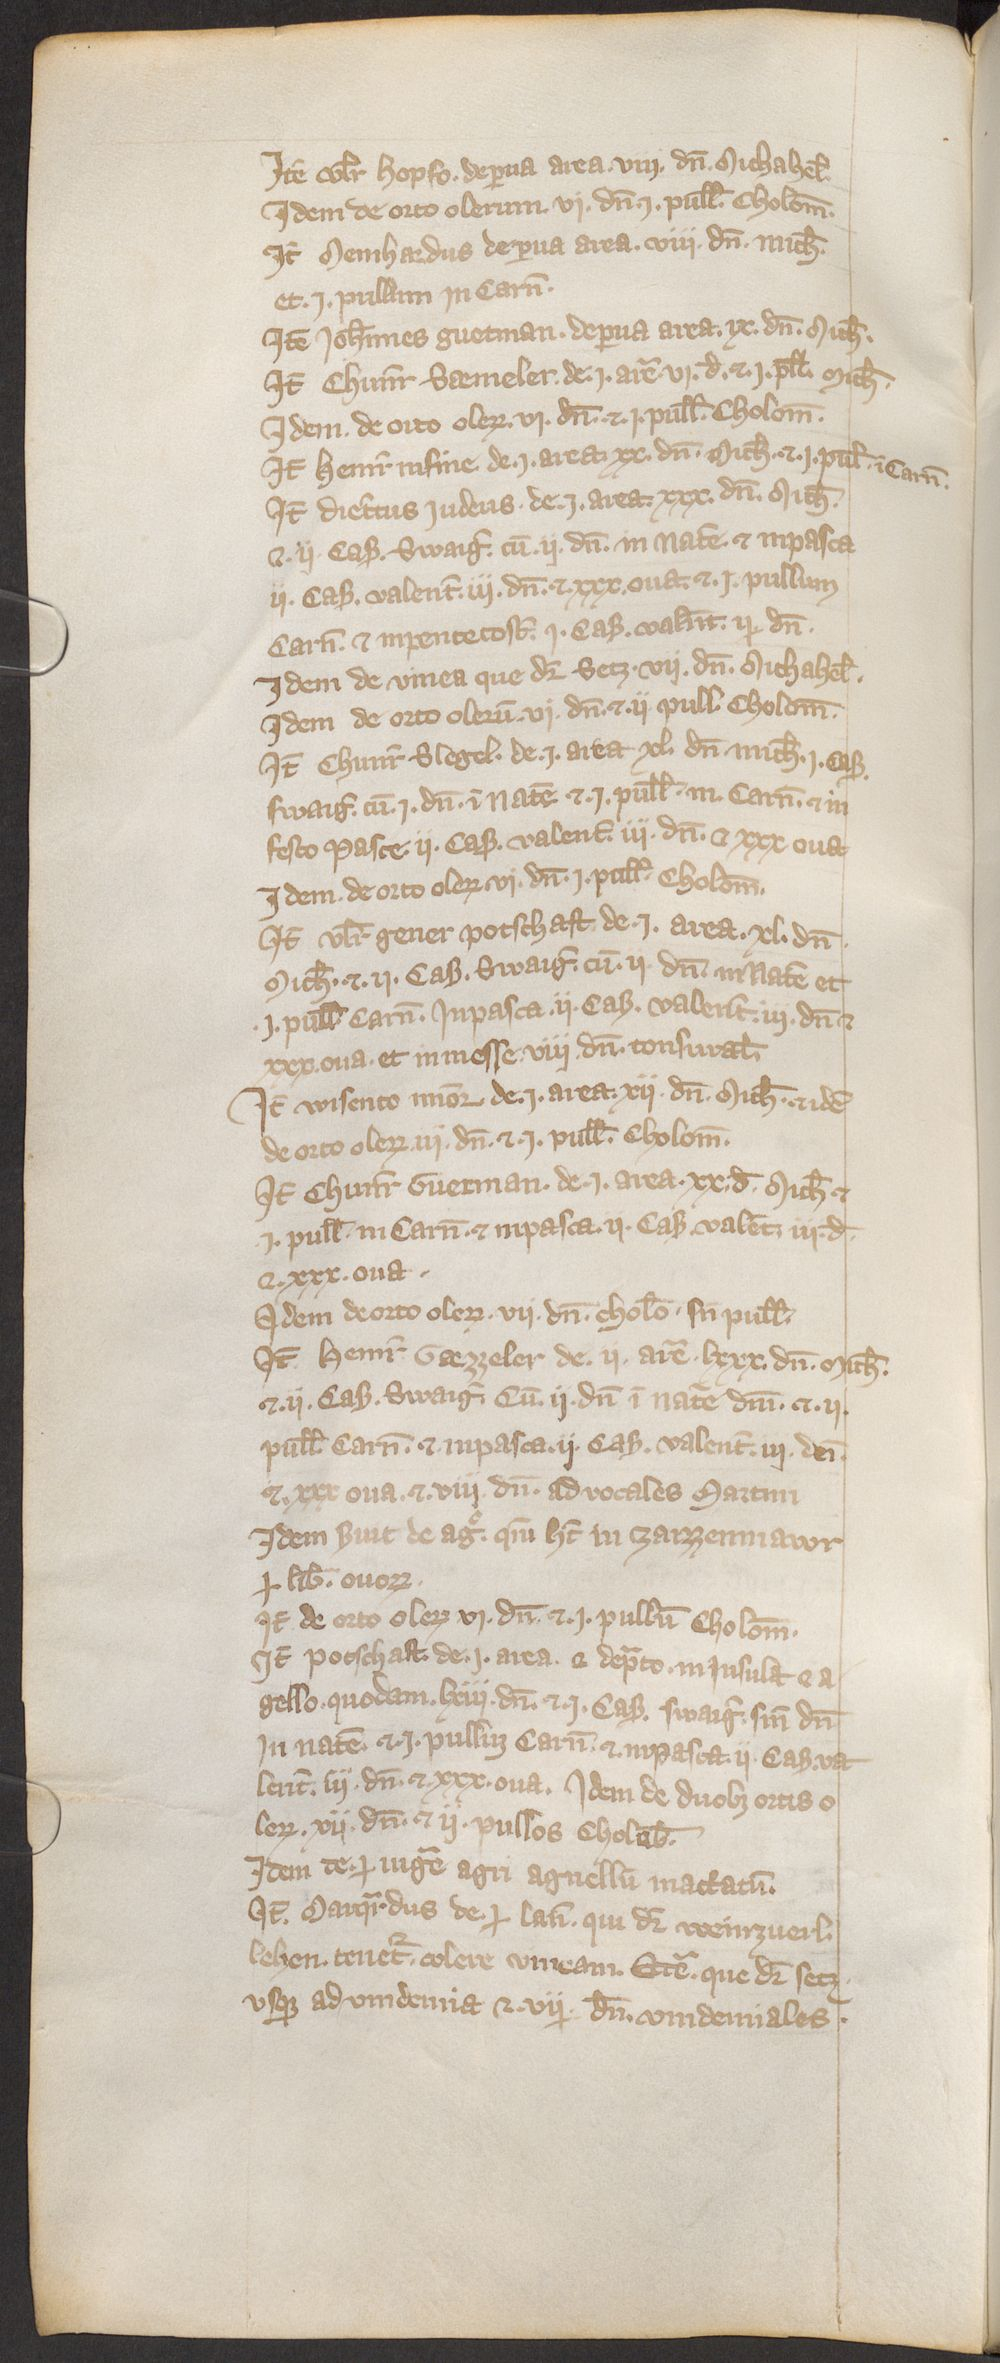 Itē vlr̄ hopfo. de pua area. viij. dn̄. Michahel̄.
Idem de orto olerum. vj. dn̄. j. pull̄. Cholom̄.
It̄ Meinhardus de pua area. viij. dn̄. mich̄.
et. j. pullum in Carn̄.
Itē Joh̄nnes guetman. de pua area. ix. dn̄. Mich̄.
It̄ Chunr̄ Sæmeler. de. j. arē. vj. d̄. ⁊. j. pll̄. Mich̄.
Idem. de orto olerꝝ. vj. dn̄. ⁊. j. pull̄. Cholom̄.
It̄ Heinr̄ in fine. de. j. area. xx. dn̄. Mich̄. ⁊. j. pul̄. ī Carn̄.
It̄ dictus Judeus. de. j. area. xxx. dn̄. Mich̄.
⁊. ij. Cas. Swaiḡ. cū. ij. dn̄. in Natē. ⁊ in pasca
ij. Cas. valent̄. iij. dn̄. ⁊. xxx. oua. ⁊. j. pullum
Carn̄. ⁊ in pentecost̄. j. Cas. valēt. dn̄.
Idem de vinea que dr̄ Setz. vij. dn̄. Michahel̄.
Idem de orto olerū. vj. dn̄. ⁊. ij. pull Cholom̄.
It̄ Chunr̄ Slegel. de. j. area xl. dn̄. mich̄. j. Cas.
swaiḡ. cū. j. dn̄. ī Natē. ⁊. j. pull̄. in. Carn̄. ⁊ in
festo pasce. ij. Cas. valent̄. iij. dn̄. ⁊ xxx oua
Idem. de orto olerꝝ. vj. dn̄. j. pull̄. Cholom̄.
It̄ vlr̄ gener potschaft. de. j. area. xl. dn̄.
Mich̄. ⁊. ij. Cas. Swaiḡ. cū. ij. dn̄. in Natē et
. j. pull̄ Carn̄. In pasca. ij. Cas. valent̄. iij. dn̄ ⁊
xxx. oua. et in messe. viij. dn̄.
It̄ wisento de. j. area. xij. dn̄. Mich̄. ⁊ idē
de orto olerꝝ. iij. dn̄. ⁊. j. pull̄. Cholom̄.
It̄ Chunr̄ Guetman. de. j. area. xx. d̄. Mich̄ ⁊
. j. pull̄. in Carn̄. ⁊ in pasca. ij. Cas. valēt. iij. d̄.
⁊. xxx. oua.
Idem de orto olerꝝ. vij. dn̄. cholō. sn̄ pull̄.
It̄. Heinr̄ Gæzzeler de. ij. arē. lxxx. dn̄. Mich̄.
⁊. ij. Cas. Swaiḡ. Cū. ij. dn̄ ī Natē dn̄i. ⁊. ij.
pull̄ Carn̄. ⁊ in pasca. ij. Cas. valent̄. iij. den̄.
⁊. xxx oua. ⁊. viij. dn̄. ad vocales Martini
Idem de ag̊. qm̄ ht̄ in
lib̄. ouorꝝ.
It̄ de orto olerꝝ vj. dn̄. ⁊. j. pullū Cholom̄.
It̄ potschaft. de. j. area. ⁊ de p̄to. in Insula ⁊ a
gello. quodam. lxiij. dn̄. ⁊. j. Cas. swaiḡ. sin̄ dn̄
In natē. ⁊. j. pullū Carn̄. ⁊ in pasca. ij. Cas. va
lent̄. iij. dn̄. ⁊. xxx. oua. Idem de duobꝫ ortis o
lerꝝ. xij. dn̄. ⁊ ij. pullos
Idem iugē agri agnellū mactatū.
It̄. Marqr̄dus de. lan̄. qui dr̄
lehen. tenet̄. colere vineam. que dr̄ setz.
vsqꝫ ad vindemia ⁊. vij. dn̄. vindemiales.